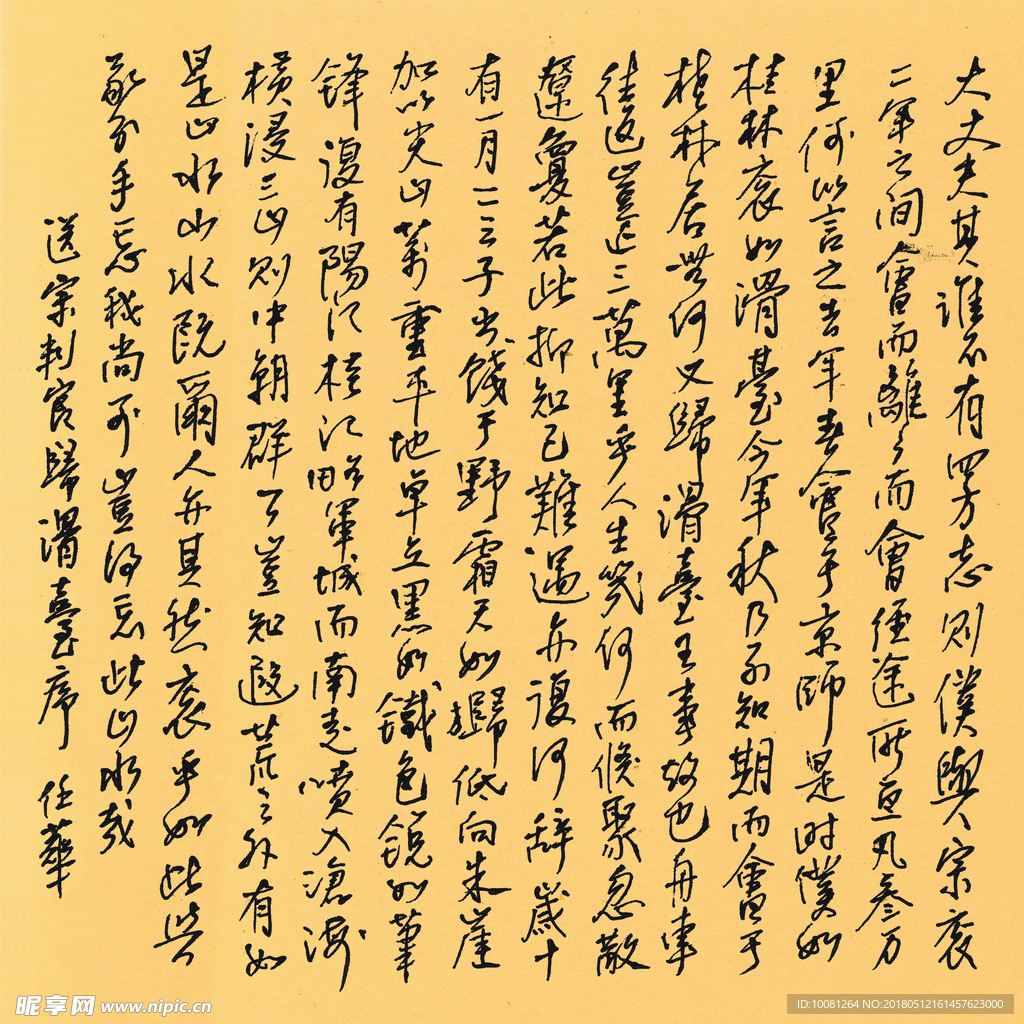 大丈夫其誰不有四方志則僕與宗袞
二年之間會而離々而會經途所亘凡叄万
里何以言之去年春會于京師是時僕如
桂林袞如滑臺今年秋乃不知期而會于
桂林居無何又歸滑臺王事故也舟車
往返豈止三萬里乎人生幾何而倏聚忽散
遼夐若此抑知己難遇亦復何辭歲十
有一月二三子出餞于野霜天如掃低向朱崖
加以尖山萬重平地卓立黑如鐵色銳如筆
鋒復有陽江桂江略軍城而南走噴入滄海
橫浸三山則中朝群公豈知遐荒之外有如
是山水山水既爾人亦其然袞乎如此與
我分手忘我尚可豈得忘此山水哉
送宗判官歸滑臺序 任華
昵享网 www.nipic.cn
ID:10081264 NO:20180512161457623000